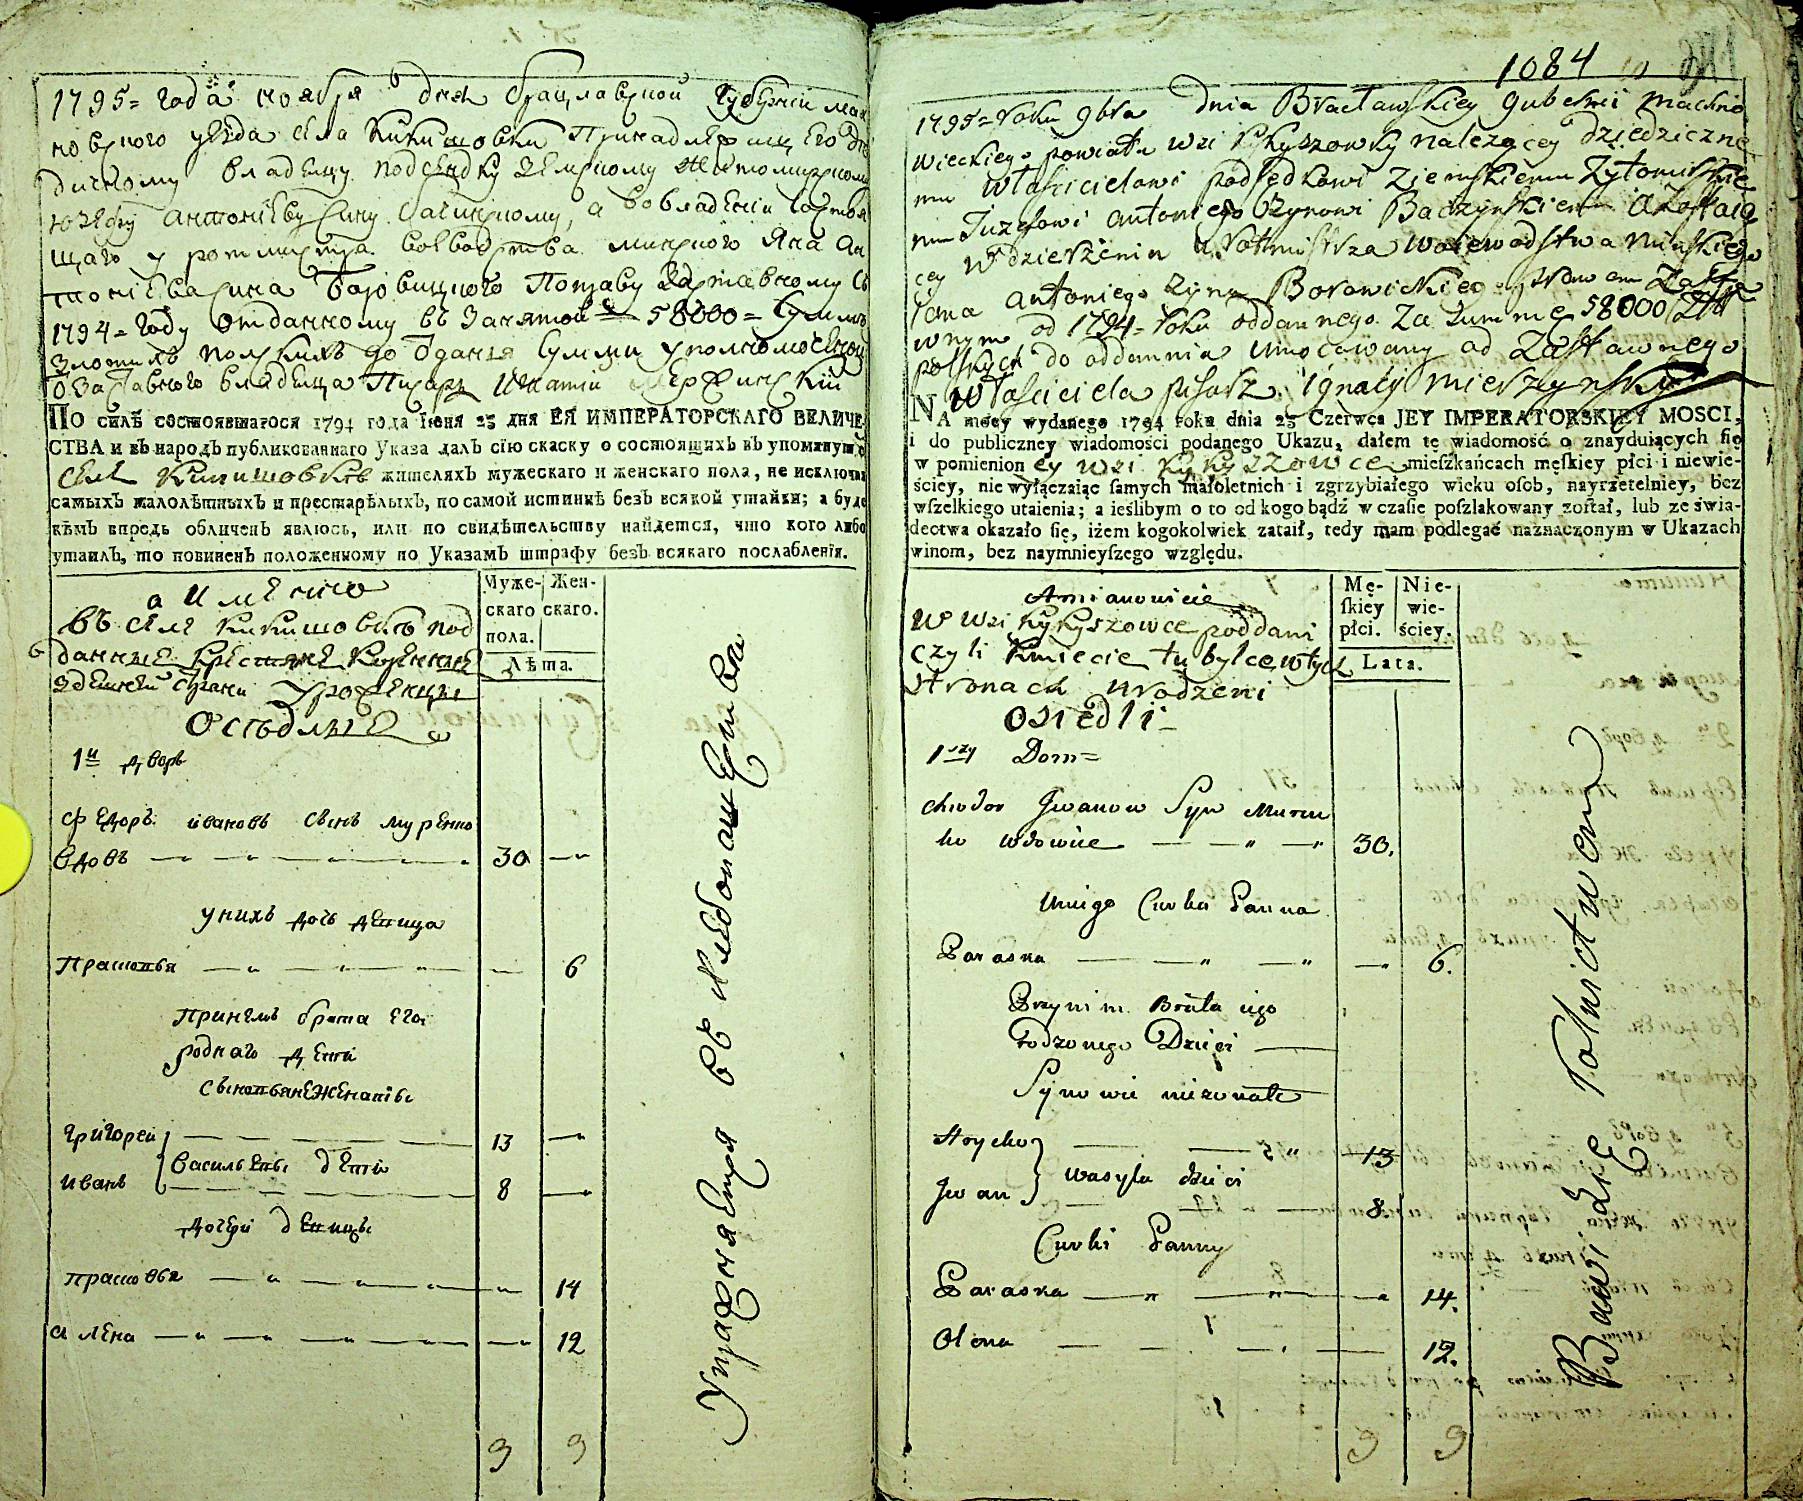 1795 = года ноября 6 дня Брацлавской Губернии мах
новского уезда села Кикишовки Принадлежащ его дѣ
дичному владельцу подсендку земскому Житомирскому
Юзефу антониеву сину Бачинскому, а во владении состоя
щаго у ротмистра воеводства минского Яна Ан
тониева сина Боровицкого Потаву заставному съ
1794 = году отданному въ занятой 58000 = Сумме
злотихъ полскихъ до отдания Суммы уполномоченой
о заставного владельца Писарь Игнатий Мержинский
ПО силѣ состоявшагося 1794 года Іюня 23 дня ЕЯ ИМПЕРАТОРСКАГО ВЕЛИЧЕ-
СТВА и въ народъ публикованнаго Указа далъ сію скаску о состоящихъ въ упомянутомъ
селе Кикишовке жителяхъ мужескаго и женскаго пола, не исключая
самыхъ малолѣтныхъ и престарѣлыхъ, по самой истиннѣ безъ всякой утайки; а буде
кѣмъ впредь обличенъ явлюсь, или по свидѣтельству найдется, что кого либо
утаилъ, то повиненъ положенному по Указамъ штрафу безъ всякаго послабленія.
а Именно
Въ селе Кикишовке под
данные Крестяне Коренные
здешней страны Урожденцы
Оседлые
Муже-
скаго
пола.
Жен-
скаго.
Лѣта.
1й дворъ
Федоръ ивановъ сынъ муренко
вдовъ 30
у нихъ дочь девица
Прасковья 6
Принемъ брата его
роднаго дети
сыновья неженатие
Григорей 13
Васильевы дети
иванъ 8
дочери девицы
прасковья 14
алена 12
9 9
Упражняется въ хлебопашестве
1084
1795 = Roku 9bra Dnia Bracławskiey Gubernii Machno
wieckiego powiatu wsi Kykyszowky należącey dziedziczne
mu właścicielowi podsędkowi Ziemskiemu Żytomirskie
mu Juzefowi Antoniego Synowi Baczynskiemu a Zostaią
cey w dzierżeniu u Rotmistrza Wojewodstwa Minskiego
Jana Antoniego Syna Borowickiego prawem Zasta
wnym od 1794 = Roku oddannego Za Summę 58000 Złt
polskych do oddannia Umocowany od Zastawnego
Właściciela pisarz Ignacy Mierzynsky
NA mocy wydanego 1794 roku dnia 23 Czerwca JEY IMPERATORSKIEY MOSCI,
i do publiczney wiadomości podanego Ukazu, dałem tę wiadomość o znayduiących się
w pomienion ey wsi Kykyszowce mieszkańcach męskiey płci i niewie-
ściey, nie wyłączaiąc samych małoletnich i zgrzybiałego wieku osob, nayrzetelniey, bez
wszelkiego utaienia; a ieślibym o to od kogo bądź w czasie poszlakowany został, lub ze świa-
dectwa okazało się, iżem kogokolwiek zataił, tedy mam podlegać naznaczonym w Ukazach
winom, bez naymnieyszego względu.
Amianowicie
W wsi Kykyszowce poddani
czyli Kmiecie tubylce w tych
stronach urodzeni
osiedli
Mę-
skiey
płci.
Nie-
wie-
ściey.
Lata.
1szy Dom =
Chwdor Jwanow Syn Muren
ko wdowiec 30.
Uniego Curka Panna
Paraska 6.
Przyim. Brata iego
Rodzonego Dzieci
Synowie nieżonate
Hrycko 13
Wasyla dzieci
Jwan 8.
Curki Panny
Paraska 14.
Olena 12.
9 9
Bawi się Rolnictwem